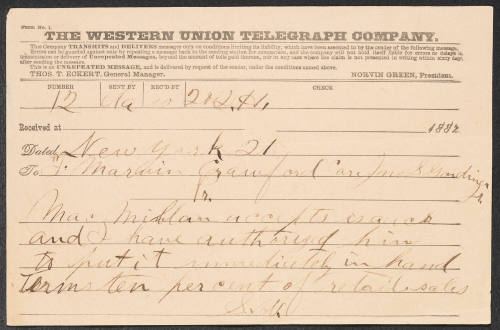 Form No. 1.
THE WESTERN UNION TELEGRAPH COMPANY.
This Company TRANSMITS and DELIVERS messages only on conditions limiting its liability, which have been assented to by the sender of the following message.
Errors can be guarded against only by repeating a message back to the sending station for comparison, and the company will not hold itself liable for errors or delays in
transmission or delivery of Unrepeated Messages, beyond the amount of tolls paid thereon, nor in any case where the claim is not presented in writing within sixty days
after sending the message.
This is an UNREPEATED MESSAGE, and is delivered by request of the sender, under the conditions named above.
THOS. T. ECKERT, General Manager. NORVIN GREEN, President.
NUMBER SENT BY REC'D BY CHECK
12
Received at 1882
Dated New York 21
To F. Marion Crawford Care
Jr.
Mac Millan accepts Isaacs
and I have authorized him
to put it immediately in hand
Terms ten per cent of retail sales